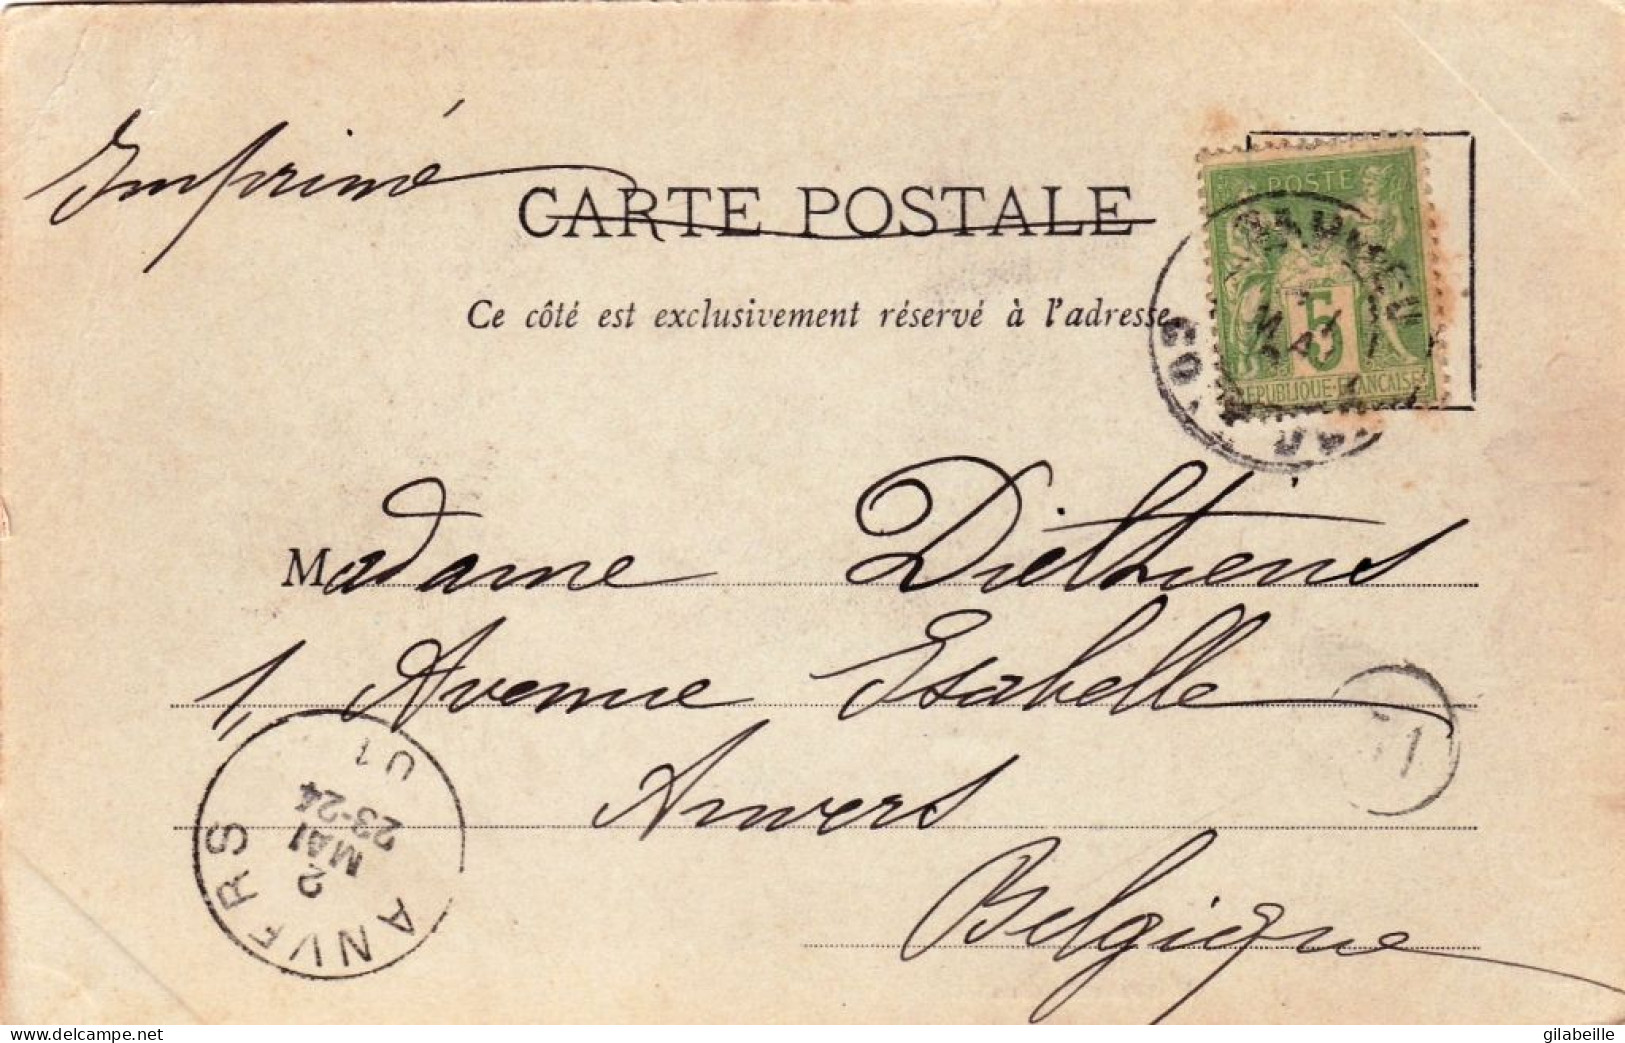 Imprimé
CARTE POSTALE
Ce côté est exclusivement réservé à l'adresse
POSTE
5
REPUBLIQUE FRANCAISE
Madame Diethiens
1, Avenue Isabelle
Anvers
Belgique
ANVERS
2
MAI
23-24
delcampe.net
gilabeille